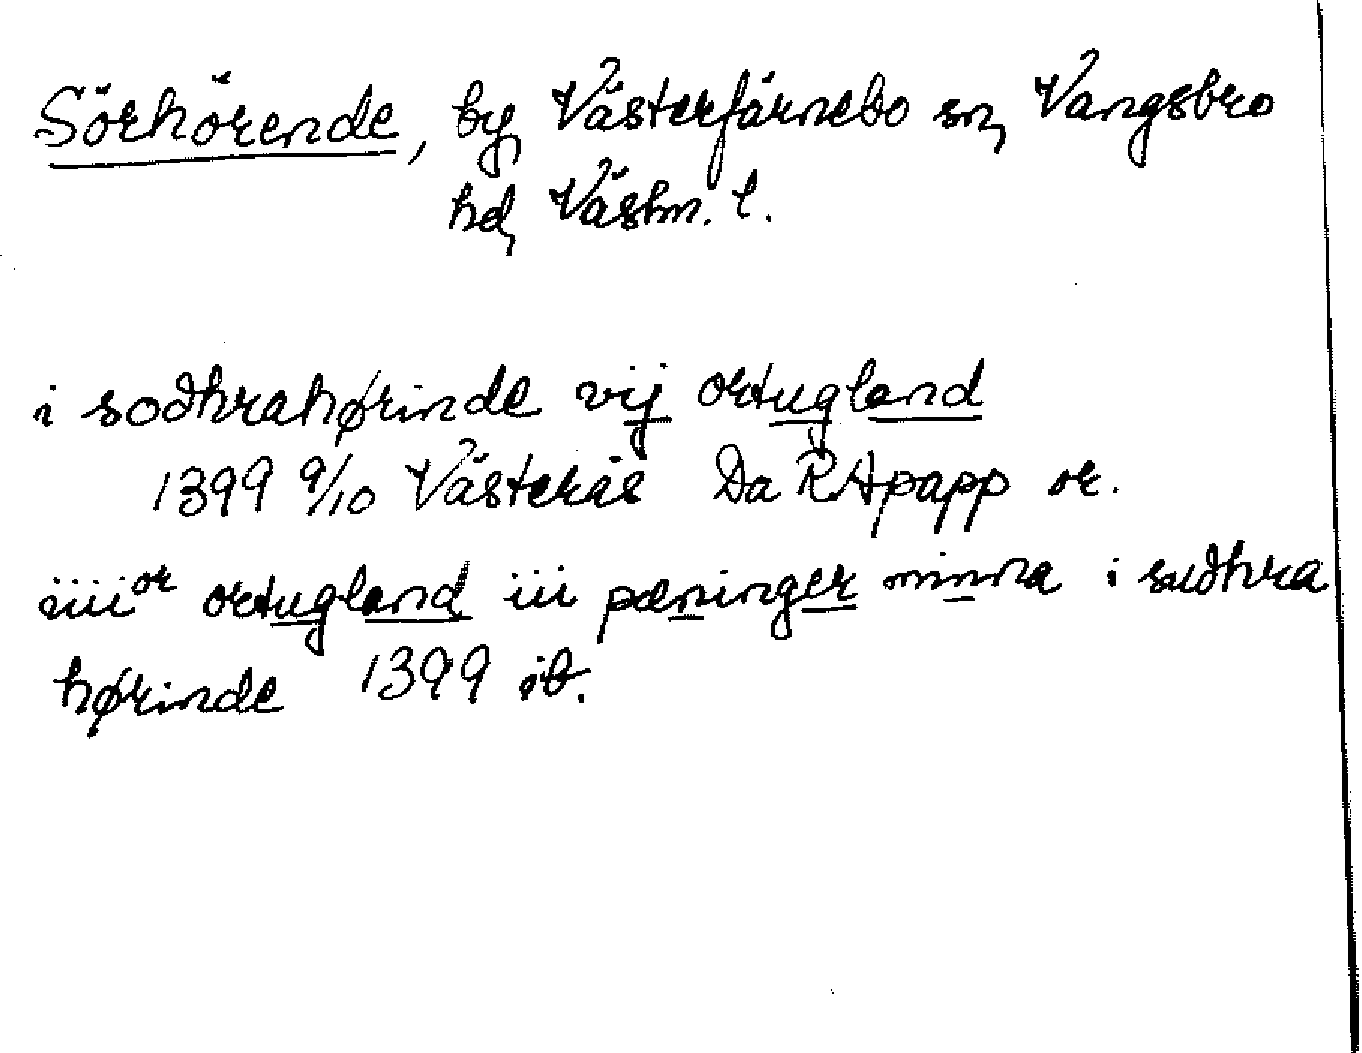 Sörhörende, by, Västerfärnebo sn, Vangsbro
hd, Västm. l.
i soðhrahørinde vij ortugland
1399 9/10 Västerås Da RApapp or.
iiii or ortugland iii pæninger minna i suðhra
hørinde 1399 ib.